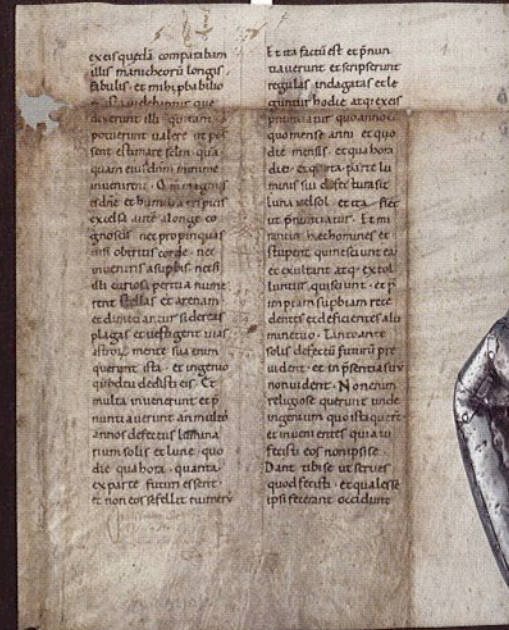 ex eis quedã comparabam
illis manicheorũ longis
fabulis · et mihi ꝓbabilio
que
dixerunt illi qui tant
potuerunt ualere ut pos
sent estimare sclm · quã
quam eius dnm minime
inuenirent · Qm magnus
es dñe et humilia respicis
excelsa autẽ a longe co
gnoscis · nec propinquas
nisi obtritis corde · nec
inueniris a supbis · nec si
illi curiosa peritia nume
rent stellas et arenam
et dimetiantur sidereas
plagas et uestigent uias
astroꝝ mente sua enim
querunt ista · et ingenio
quod tu dedisti eis · Et
multa inuenerunt et p̃
nuntiauerunt an multos
annos defectus lumina
rium solis et lune · quo
die qua hora · quanta
ex parte futuri essent ·
et non eos fefellit numerus
Et ita factũ est et p̃nun
tiauerunt et scripserunt
regulas indagatas et le
guntur hodie atq; ex eis
pnuntiatur quo anno et
quo mense anni et quo
die mensis · et qua hora
diei et quota parte lu
minis sui defectura sit
luna uel sol · et ita fiet
ut p̃nuntiatur · Et mi
rantur hec homines et
stupent qui nesciunt ea
et exultant atq; extol
luntur qui sciunt · et p̃
impiam supbiam rece
dentes et deficientes a lu
mine tuo · Tanto ante
solis defectũ futurũ pre
uident · et in p̃sentia suũ
non uident · Non enim
religiose querunt unde
ingenium quo ista querũt
et inuenientes quia tu
fecisti eos non ipsi se
Dant tibi se ut serues
quod fecisti · et quales se
ipsi fecerant occidunt